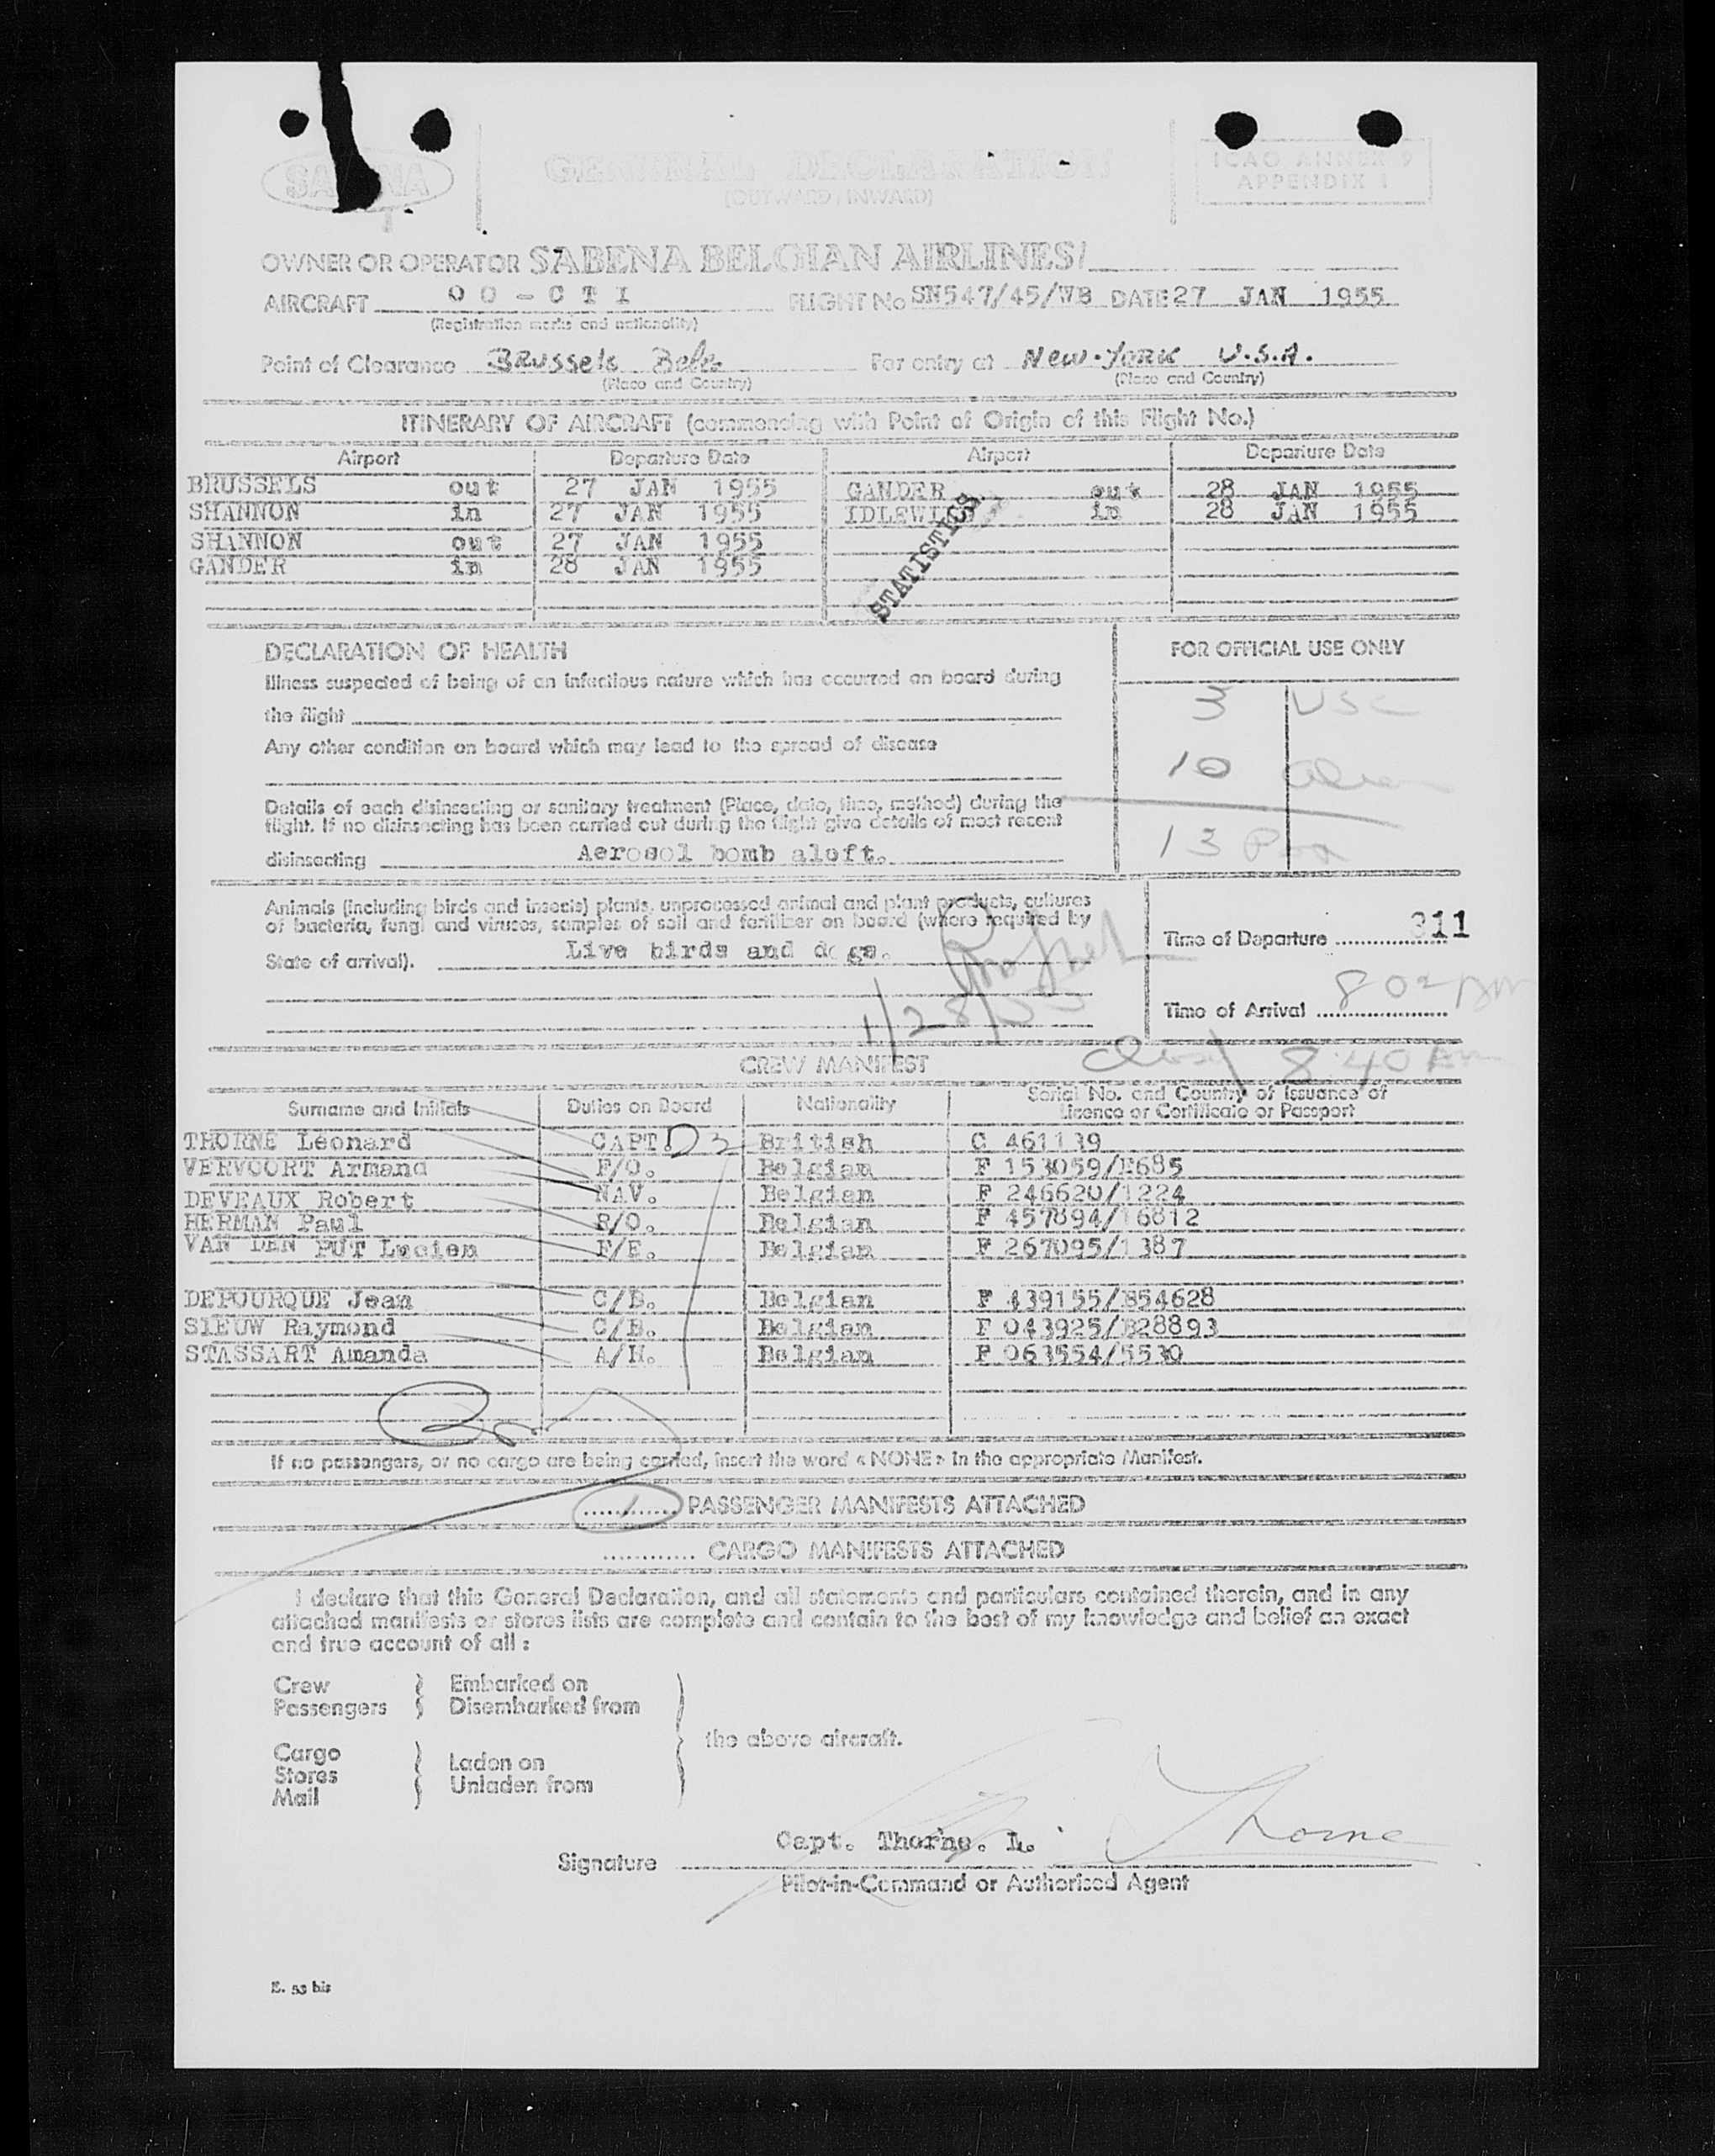 SABENA
GENERAL DECLARATION
(OUTWARD / INWARD)
ICAO ANNEX 9
APPENDIX 1
OWNER OR OPERATOR SABENA BELGIAN AIRLINES/
AIRCRAFT OO-CTI FLIGHT No SN547/45/WB DATE 27 JAN 1955
(Registration marks and nationality)
Point of Clearance Brussels For entry at New-York U.S.A.
(Place and Country) (Place and Country)
ITINERARY OF AIRCRAFT (commencing with Point of Origin of this Flight No.)
Airport Departure Date Airport Departure Date
BRUSSELS out 27 JAN 1955 GANDER out 28 JAN 1955
SHANNON in 27 JAN 1955 IDLEWILD in 28 JAN 1955
SHANNON out 27 JAN 1955
GANDER in 28 JAN 1955
STATISTICS
DECLARATION OF HEALTH
Illness suspected of being of an infectious nature which has occurred on board during
the flight
Any other condition on board which may lead to the spread of disease
Details of each disinsecting or sanitary treatment (Place, date, time, method) during the
flight. If no disinsecting has been carried out during the flight give details of most recent
disinsecting Aerosol bomb aloft.
FOR OFFICIAL USE ONLY
3 USC
10 alien
13
Animals (including birds and insects) plants, unprocessed animal and plant products, cultures
of bacteria, fungi and viruses, samples of soil and fertilizer on board (where required by
State of arrival). Live birds and dogs.
1/28/55
Time of Departure 311
Time of Arrival 802
8:40
CREW MANIFEST
Surname and Initials Duties on Board Nationality Serial No. and Country of Issuance of
Licence or Certificate or Passport
THORNE Leonard CAPT. D3 British C 461139
VERVOORT Armand F/O. Belgian F 153059/E685
DEVEAUX Robert NAV. Belgian F 246620/1224
HERMAN Paul R/O. Belgian F 457894/16812
VAN DEN PUT Lucien F/E. Belgian F 267095/1387
DEPOURQUE Jean C/B. Belgian F 439155/B54628
SIEUW Raymond C/B. Belgian F 043925/B28893
STASSART Amanda A/H. Belgian F 063554/5530
If no passengers, or no cargo are being carried, insert the word « NONE » in the appropriate Manifest.
1 PASSENGER MANIFESTS ATTACHED
............ CARGO MANIFESTS ATTACHED
I declare that this General Declaration, and all statements and particulars contained therein, and in any
attached manifests or stores lists are complete and contain to the best of my knowledge and belief an exact
and true account of all :
Crew Embarked on
Passengers Disembarked from
the above aircraft.
Cargo Laden on
Stores Unladen from
Mail
Capt. Thorne. L. Thorne
Signature
Pilot-in-Command or Authorised Agent
E. 53 bis